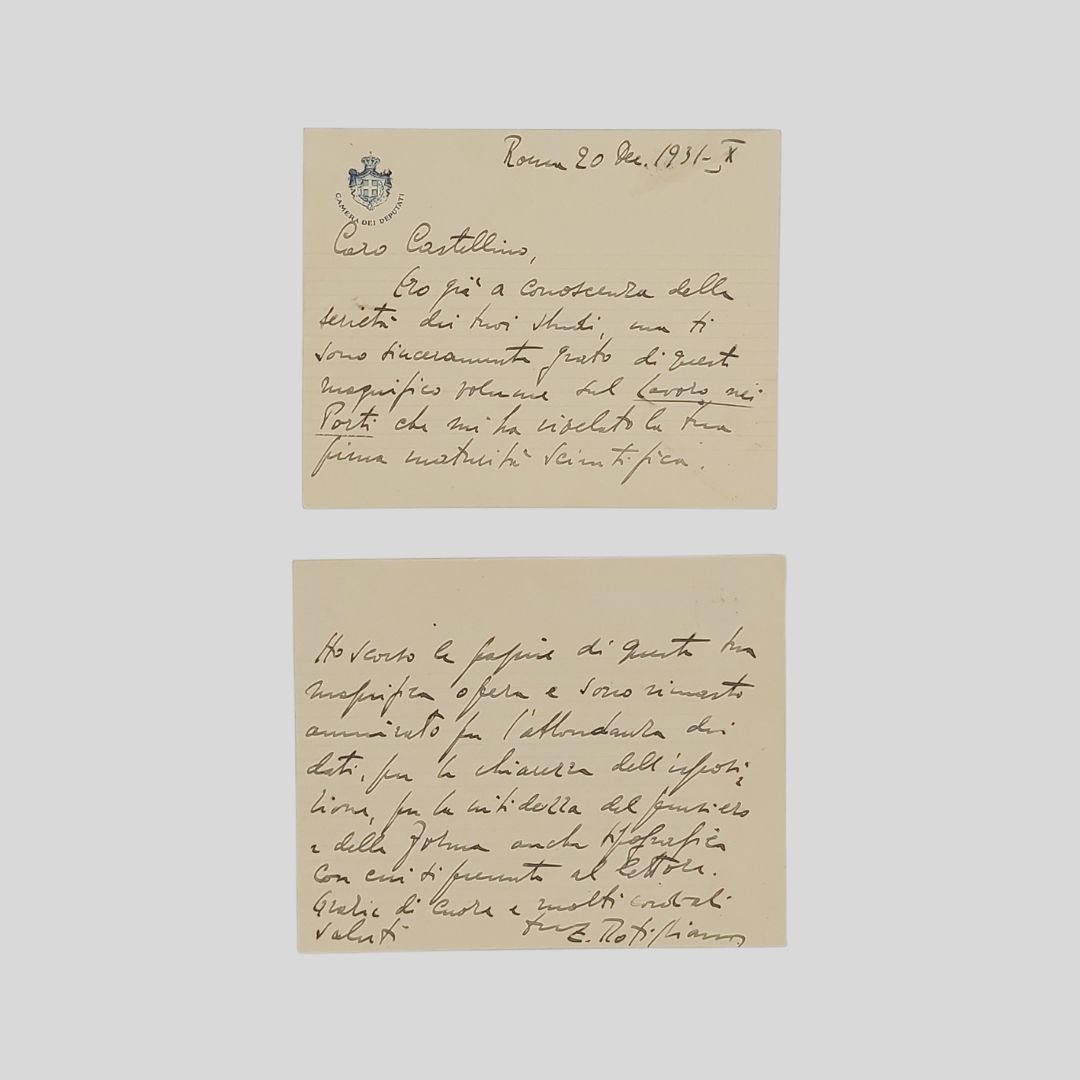 Roma 20 Dec. 1931-X
CAMERA DEI DEPUTATI
Caro Castellino,
Ero già a conoscenza della
serietà dei tuoi studi, ma ti
sono sinceramente grato di questo
magnifico volume sul Lavoro nei
Porti che mi ha rivelato la tua
piena maturità scientifica.
Ho scorso le pagine di questa tua
magnifica opera e sono rimasto
ammirato per l'abbondanza dei
dati, per la chiarezza dell'esposi
zione, per la nitidezza del pensiero
e della forma anche tipografica
con cui si presenta al lettore.
Grazie di cuore e molti cordiali
saluti tuo E. Rotigliano